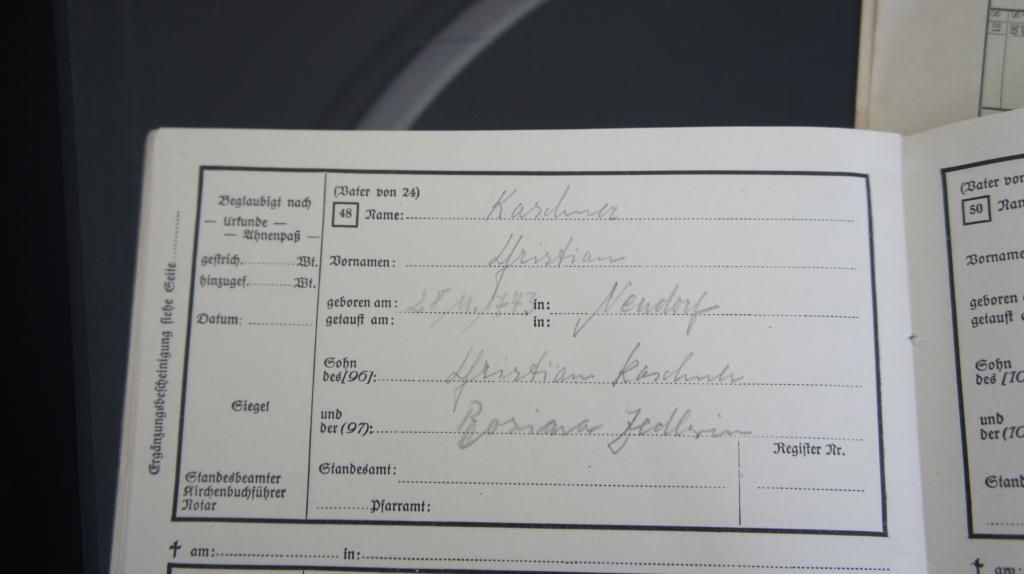 Ergänzungsbescheinigung siehe Seite
Beglaubigt nach
— Urkunde —
— Ahnenpaß —
gestrich. Wt.
hinzugef. Wt.
Datum:
Siegel
Standesbeamter
Kirchenbuchführer
Notar
(Vater von 24)
48 Name: Kaschner
Vornamen: Christian
geboren am: 28.11.1743 in: Neudorf
getauft am: in:
Sohn
des [96]: Christian Kaschner
und
der (97): Rosina Jedlerin
Register Nr.
Standesamt:
Pfarramt:
✝ am: in:
(Vater von
50
Vorname
geboren
getauft
Sohn
des
und
der
✝ am: